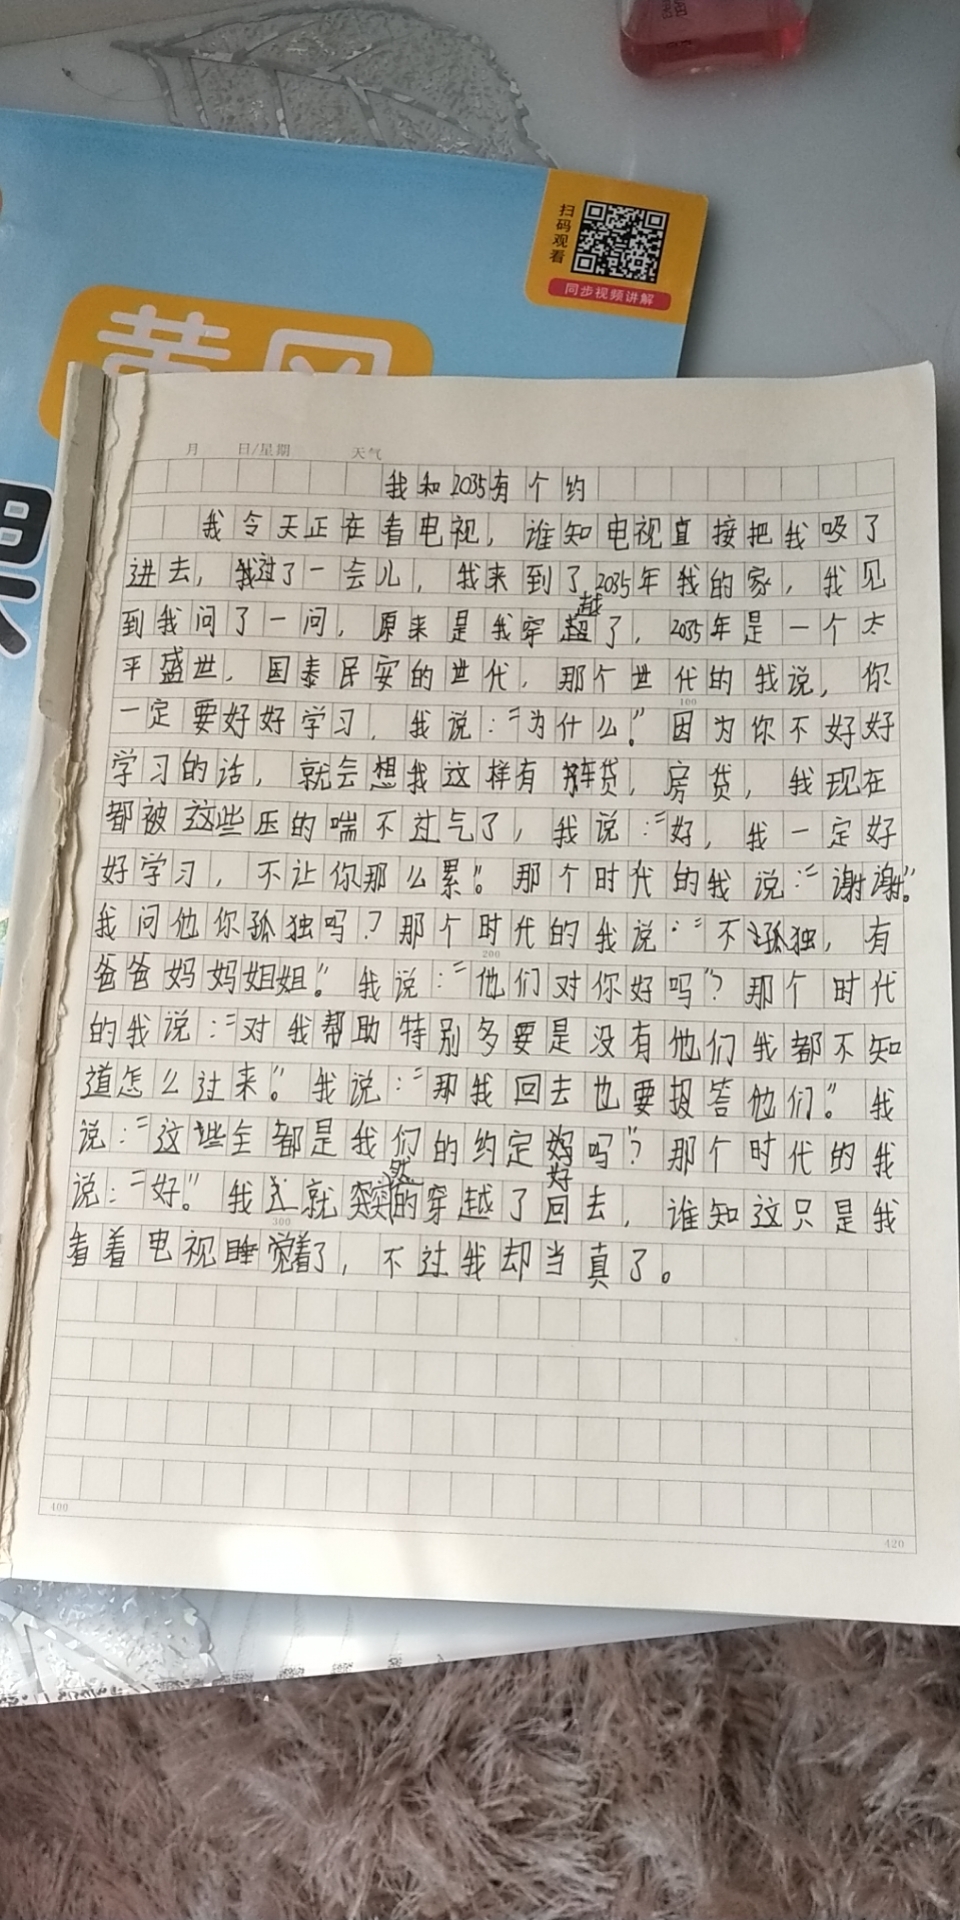 扫码观看
同步视频讲解
黄冈
课
月 日/星期 天气
我和2035有个约
我今天正在看电视，谁知电视直接把我吸了
进去，我过了一会儿，我来到了2035年我的家，我见
到我问了一问，原来是我穿越了，2035年是一个太
平盛世，国泰民安的世代，那个世代的我说，你
100
一定要好好学习，我说：“为什么”因为你不好好
学习的话，就会想我这样有车贷，房贷，我现在
都被这些压的喘不过气了，我说：“好，我一定好
好学习，不让你那么累”。那个时代的我说：“谢谢”
我问他你孤独吗？那个时代的我说：“不孤独，有
200
爸爸妈妈姐姐。”我说：“他们对你好吗”？那个时代
的我说：“对我帮助特别多要是没有他们我都不知
道怎么过来。”我说：“那我回去也要报答他们。”我
说：“这些全都是我们的约定好吗”？那个时代的我
说：“好。”我就突然的穿越了回去，谁知这只是我
300
看着电视睡觉着了，不过我却当真了。
400
420